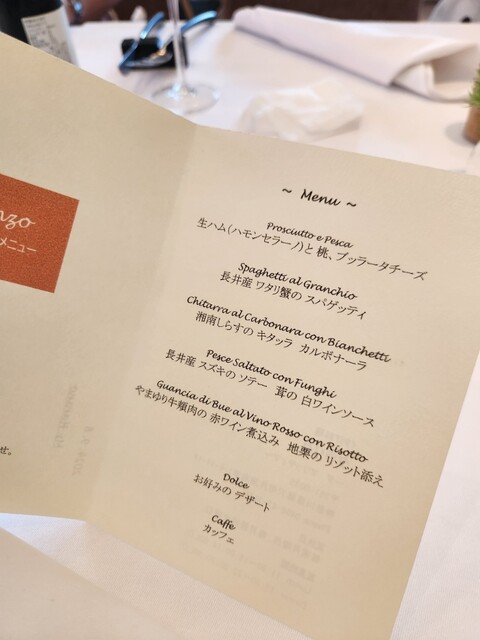 nzo
メニュー
せ。
～ Menu ～
Prosciutto e Pesca
生ハム(ハモンセラーノ)と 桃、ブッラータチーズ
Spaghetti al Granchio
長井産 ワタリ蟹の スパゲッティ
Chitarra al Carbonara con Bianchetti
湘南しらすの キタッラ カルボナーラ
Pesce Saltato con Funghi
長井産 スズキの ソテー 茸の 白ワインソース
Guancia di Bue al Vino Rosso con Risotto
やまゆり牛頬肉の 赤ワイン煮込み 地栗の リゾット添え
Dolce
お好みの デザート
Caffe
カッフェ